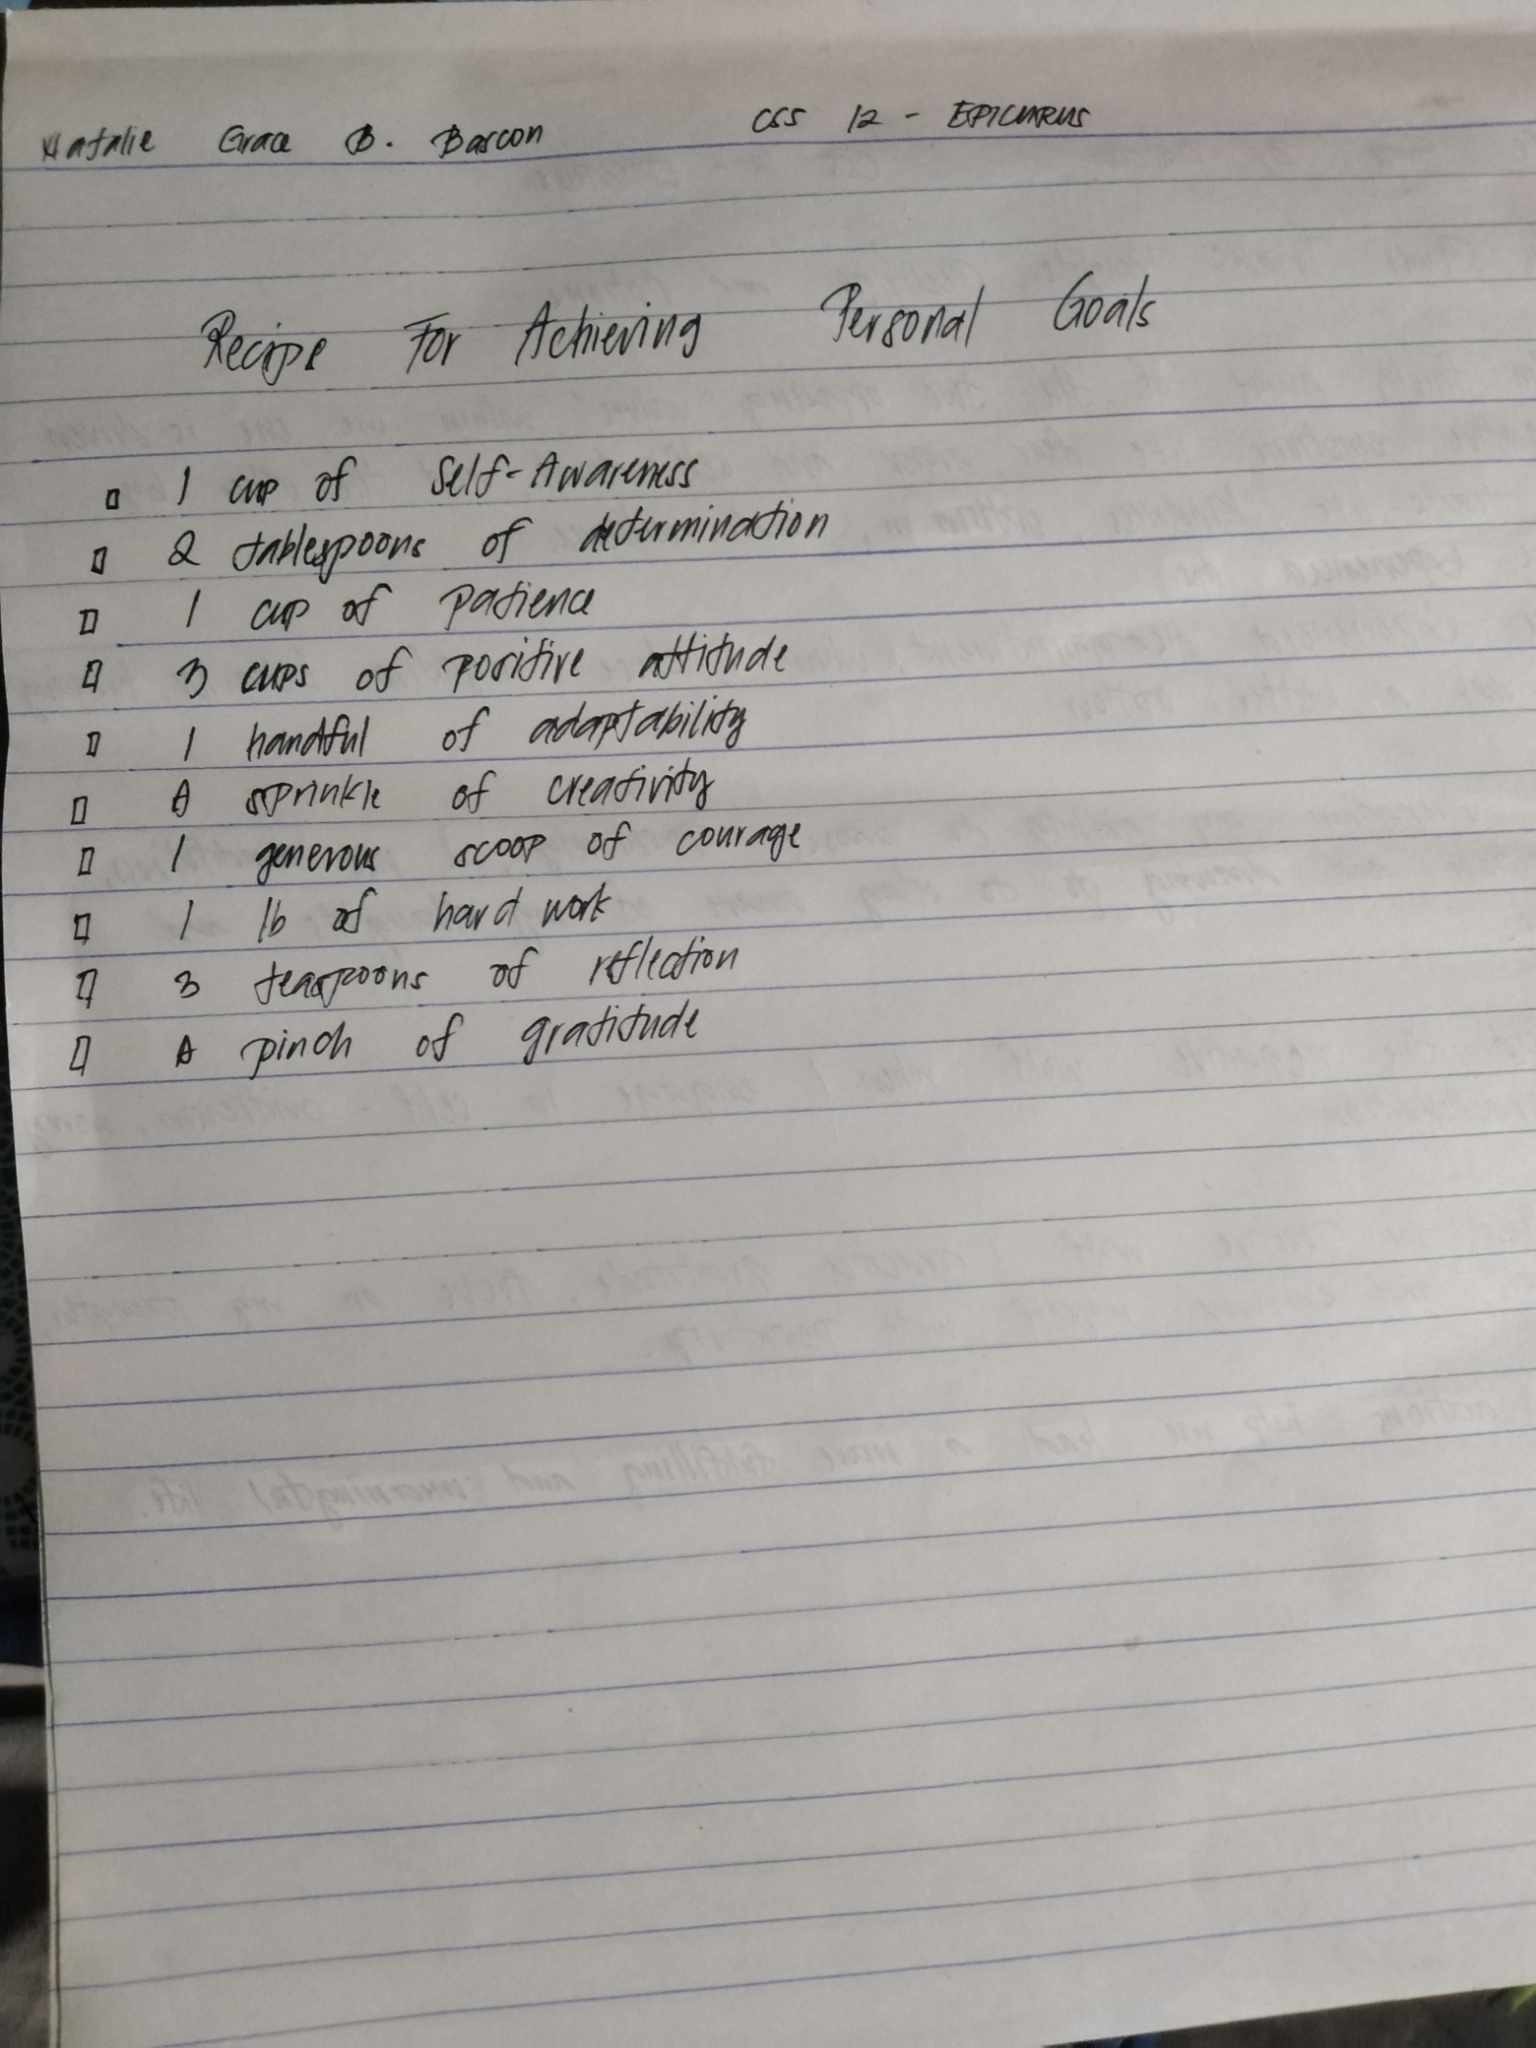 Natalie Grace B. Bascon CSS 12 - EPICURUS
Recipe For Achieving Personal Goals
▯ 1 cup of Self-Awareness
▯ 2 tablespoons of determination
▯ 1 cup of patience
▯ 3 cups of positive attitude
▯ 1 handful of adaptability
▯ A sprinkle of creativity
▯ 1 generous scoop of courage
▯ 1 lb of hard work
▯ 3 teaspoons of reflection
▯ A pinch of gratitude